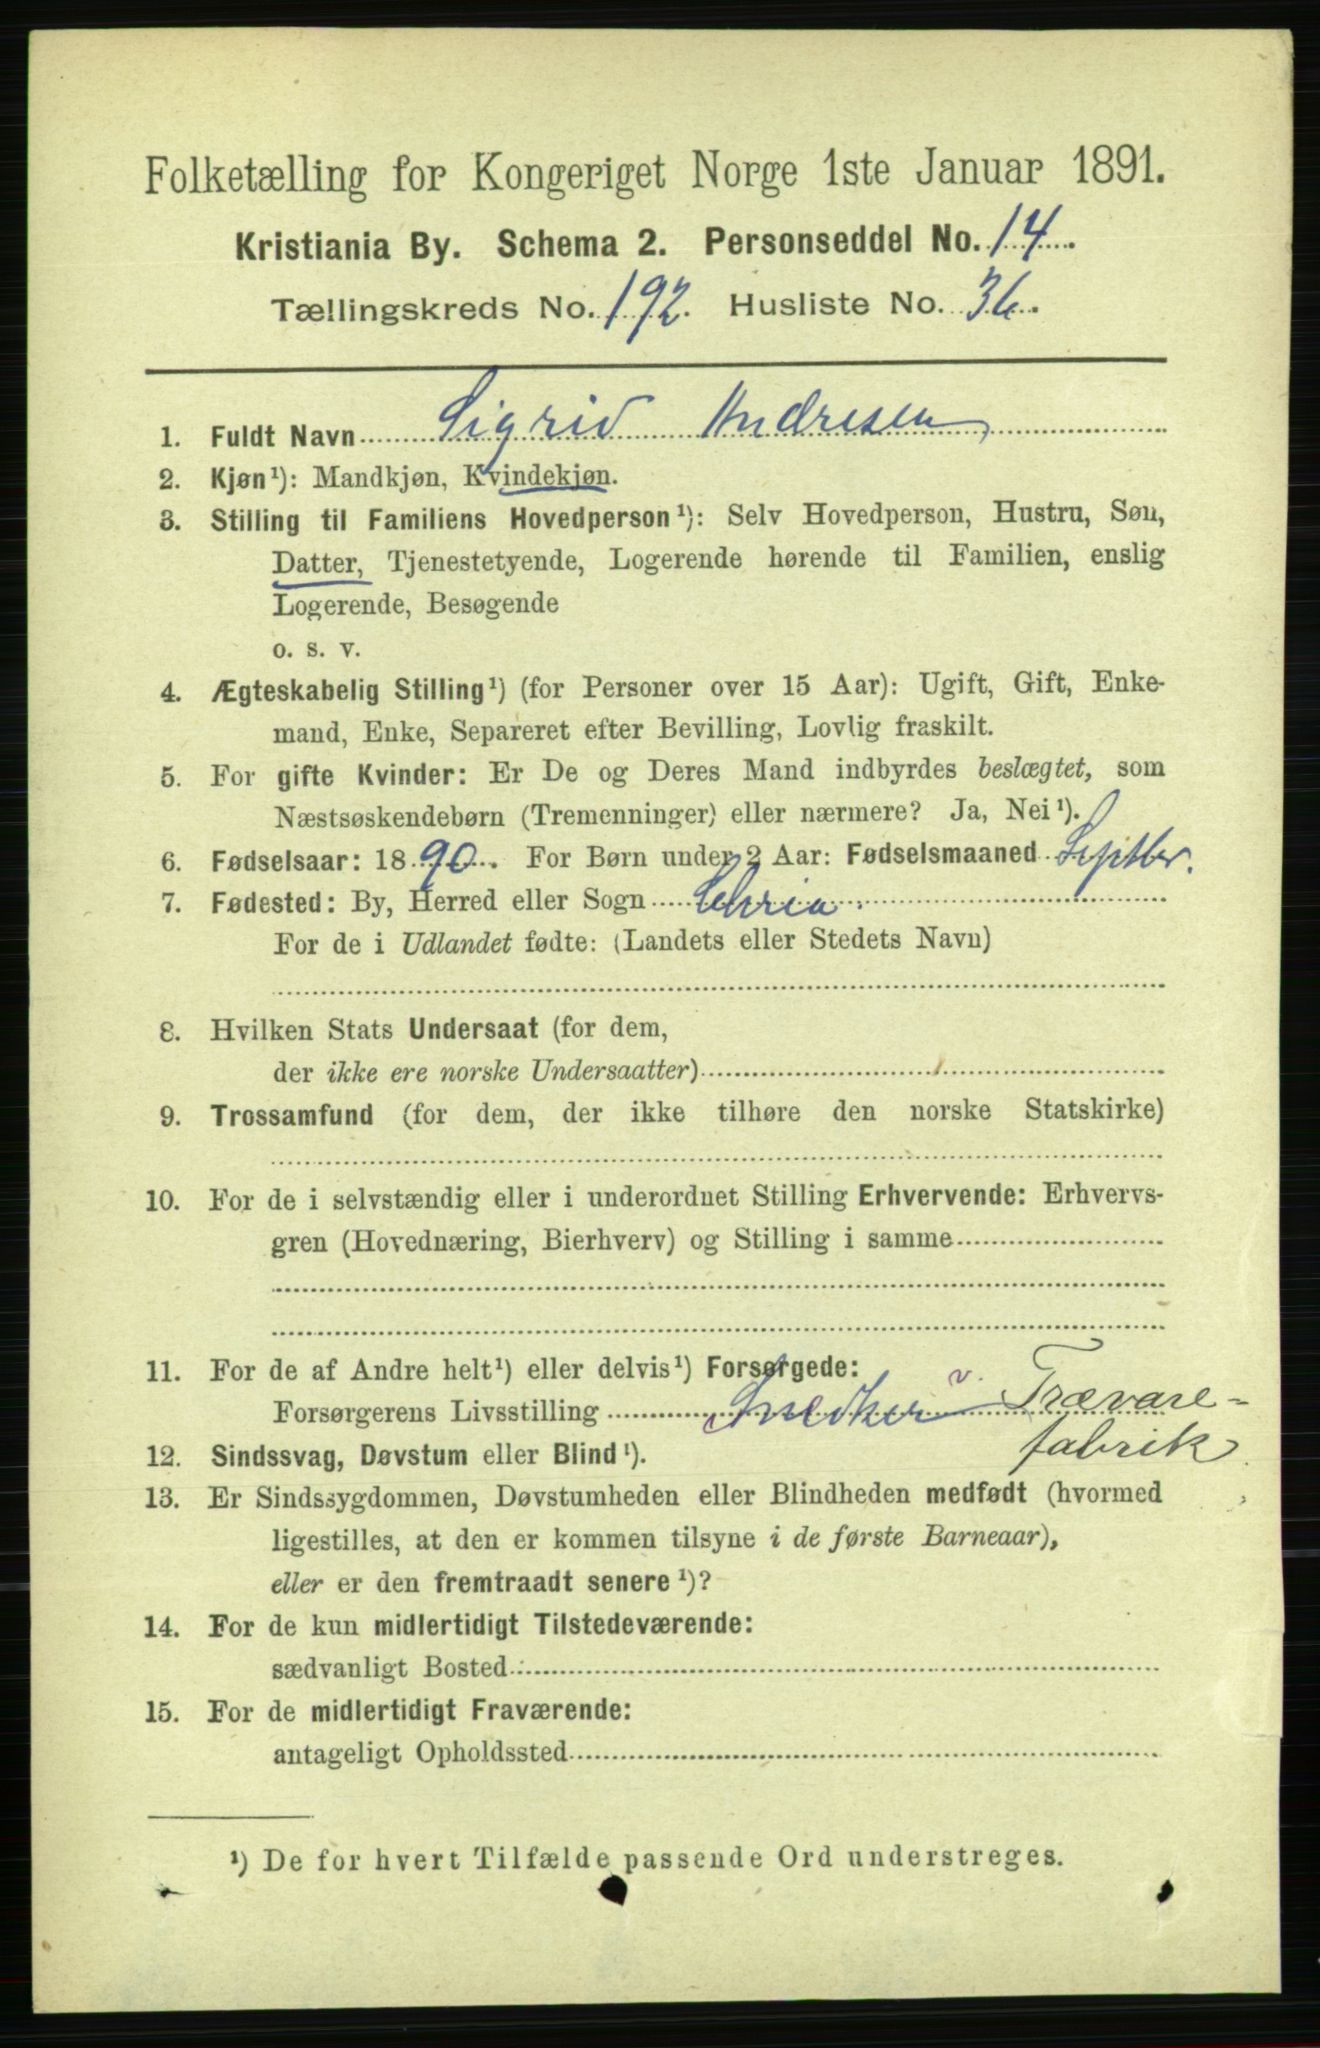 Folketælling for Kongeriget Norge 1ste Januar 1891.
Kristiania By. Schema 2. Personseddel No. 14.
Tællingskreds No. 192. Husliste No. 36.
1. Fuldt Navn Sigrid Andresen
2. Kjøn¹): Mandkjøn, Kvindekjøn.
3. Stilling til Familiens Hovedperson¹): Selv Hovedperson, Hustru, Søn,
Datter, Tjenestetyende, Logerende hørende til Familien, enslig
Logerende, Besøgende
o. s. v.
4. Ægteskabelig Stilling¹) (for Personer over 15 Aar): Ugift, Gift, Enke-
mand, Enke, Separeret efter Bevilling, Lovlig fraskilt.
5. For gifte Kvinder: Er De og Deres Mand indbyrdes beslægtet, som
Næstsøskendebørn (Tremenninger) eller nærmere? Ja, Nei¹).
6. Fødselsaar: 1890. For Børn under 2 Aar: Fødselsmaaned Septber.
7. Fødested: By, Herred eller Sogn Chria.
For de i Udlandet fødte: (Landets eller Stedets Navn)
8. Hvilken Stats Undersaat (for dem,
der ikke ere norske Undersaatter)
9. Trossamfund (for dem, der ikke tilhøre den norske Statskirke)
10. For de i selvstændig eller i underordnet Stilling Erhvervende: Erhvervs-
gren (Hovednæring, Bierhverv) og Stilling i samme
11. For de af Andre helt¹) eller delvis¹) Forsørgede:
Forsørgerens Livsstilling Snedker v. Trævare-
fabrik
12. Sindssvag, Døvstum eller Blind¹).
13. Er Sindssygdommen, Døvstumheden eller Blindheden medfødt (hvormed
ligestilles, at den er kommen tilsyne i de første Barneaar),
eller er den fremtraadt senere¹)?
14. For de kun midlertidigt Tilstedeværende:
sædvanligt Bosted
15. For de midlertidigt Fraværende:
antageligt Opholdssted
¹) De for hvert Tilfælde passende Ord understreges.